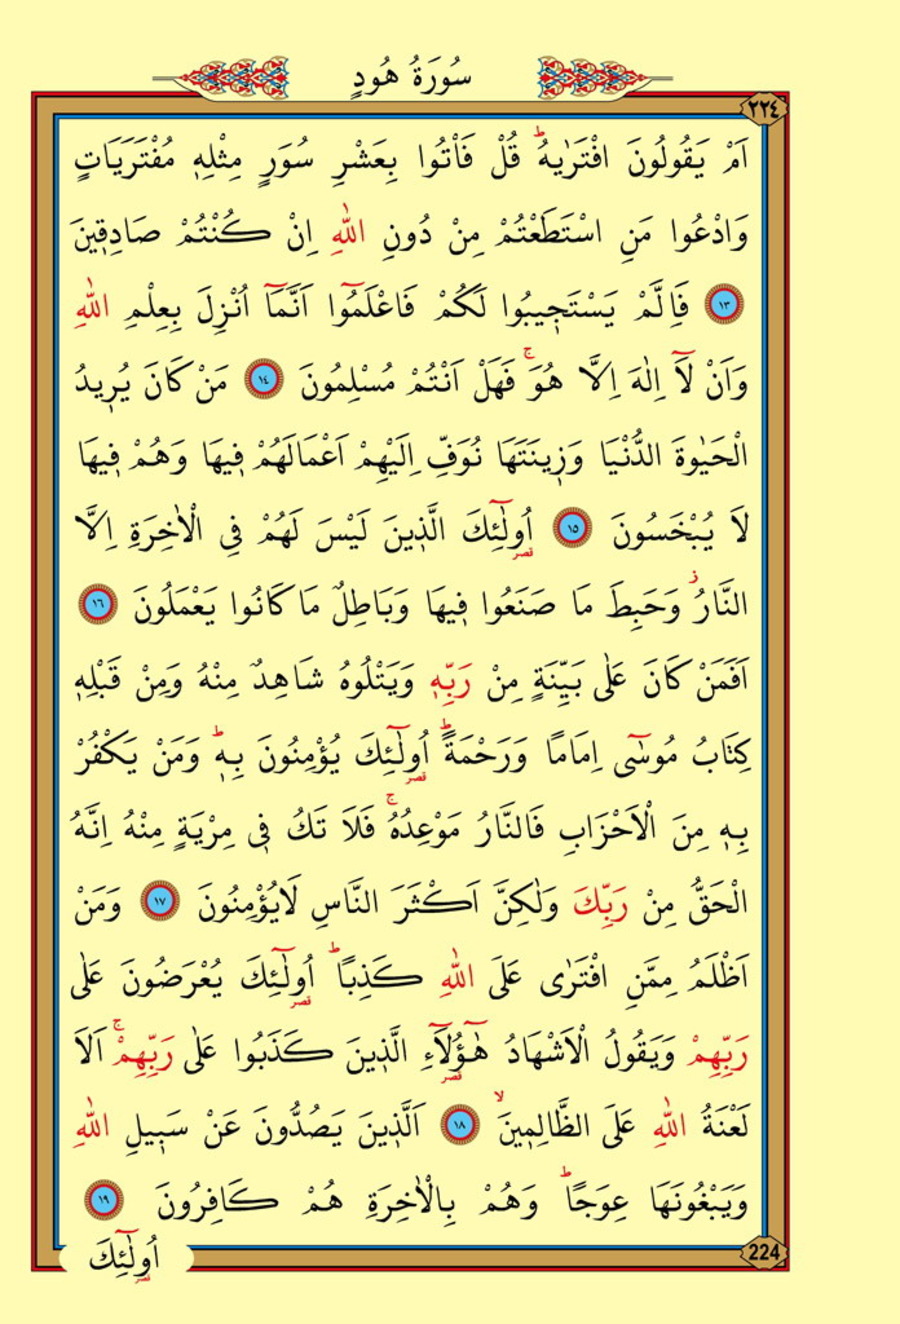 سُورَةُ هُودٍ
٢٢٤
اَمْ يَقُولُونَ افْتَرٰيهُۜ قُلْ فَأْتُوا بِعَشْرِ سُوَرٍ مِثْلِه۪ مُفْتَرَيَاتٍ
وَادْعُوا مَنِ اسْتَطَعْتُمْ مِنْ دُونِ اللّٰهِ اِنْ كُنْتُمْ صَادِق۪ينَ
﴿١٣﴾ فَاِلَّمْ يَسْتَج۪يبُوا لَكُمْ فَاعْلَمُٓوا اَنَّمَٓا اُنْزِلَ بِعِلْمِ اللّٰهِ
وَاَنْ لَٓا اِلٰهَ اِلَّا هُوَۚ فَهَلْ اَنْتُمْ مُسْلِمُونَ ﴿١٤﴾ مَنْ كَانَ يُر۪يدُ
الْحَيٰوةَ الدُّنْيَا وَز۪ينَتَهَا نُوَفِّ اِلَيْهِمْ اَعْمَالَهُمْ ف۪يهَا وَهُمْ ف۪يهَا
لَا يُبْخَسُونَ ﴿١٥﴾ اُو۬لٰٓئِكَ الَّذ۪ينَ لَيْسَ لَهُمْ فِي الْاٰخِرَةِ اِلَّا
النَّارُۘ وَحَبِطَ مَا صَنَعُوا ف۪يهَا وَبَاطِلٌ مَا كَانُوا يَعْمَلُونَ ﴿١٦﴾
اَفَمَنْ كَانَ عَلٰى بَيِّنَةٍ مِنْ رَبِّه۪ وَيَتْلُوهُ شَاهِدٌ مِنْهُ وَمِنْ قَبْلِه۪
كِتَابُ مُوسٰٓى اِمَامًا وَرَحْمَةًۜ اُو۬لٰٓئِكَ يُؤْمِنُونَ بِه۪ۜ وَمَنْ يَكْفُرْ
بِه۪ مِنَ الْاَحْزَابِ فَالنَّارُ مَوْعِدُهُۚ فَلَا تَكُ ف۪ي مِرْيَةٍ مِنْهُ اِنَّهُ
الْحَقُّ مِنْ رَبِّكَ وَلٰكِنَّ اَكْثَرَ النَّاسِ لَايُؤْمِنُونَ ﴿١٧﴾ وَمَنْ
اَظْلَمُ مِمَّنِ افْتَرٰى عَلَى اللّٰهِ كَذِبًاۜ اُو۬لٰٓئِكَ يُعْرَضُونَ عَلٰى
رَبِّهِمْ وَيَقُولُ الْاَشْهَادُ هٰٓؤُ۬لَٓاءِ الَّذ۪ينَ كَذَبُوا عَلٰى رَبِّهِمْۚ اَلَا
لَعْنَةُ اللّٰهِ عَلَى الظَّالِم۪ينَۙ ﴿١٨﴾ اَلَّذ۪ينَ يَصُدُّونَ عَنْ سَب۪يلِ اللّٰهِ
وَيَبْغُونَهَا عِوَجًاۜ وَهُمْ بِالْاٰخِرَةِ هُمْ كَافِرُونَ ﴿١٩﴾
اُو۬لٰٓئِكَ
224